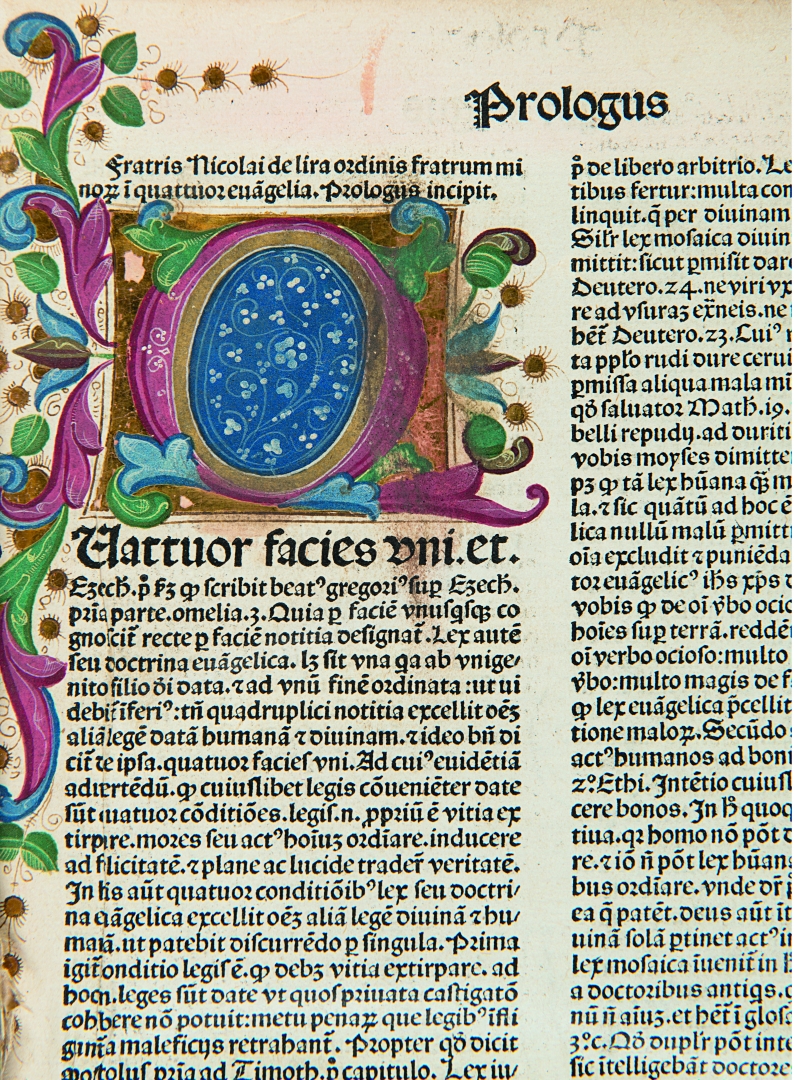 Prologus
Fratris Nicolai de lira ordinis fratrum mi
noꝝ ī quattuor euāgelia. Prologus incipit.
Uattuor facies vni.et.
Ezech.p̄ Fꝫ ꝙ scribit beatꝰ gregoriꝰ suꝑ Ezech.
pria parte.omelia.3.Quia ꝑ faciē vnusqsqꝫ co
gnoscit̄ recte ꝑ faciē notitia designat̄.Lex autē
seu doctrina euāgelica. lꝫ sit vna qa ab vnige⸗
nito filio d̄i data.⁊ ad vnū finē ordinata :ut ui
debit̄ īferiꝰ:tn̄ quadruplici notitia excellit oēꝫ
aliā legē datā humanā ⁊ diuinam.⁊ ideo bn̄ di
cit̄ te ipsa.quatuor facieſ vni.Ad cuiꝰ euidētiā
aduertēdū.ꝙ cuiuslibet legis cōueniēter date
sūt quatuor cōditiōes.legis.n. ꝓpriū ē vitia ex
tirpare.mores seu actꝰ hoiuꝫ ordīare.inducere
ad felicitatē.⁊ plane ac lucide trader̄ veritatē.
In his aūt quatuor conditiōibꝰ lex seu doctri⸗
na euāgelica excellit oēꝫ aliā legē diuinā ⁊ hu⸗
manā.ut patebit discurrēdo ꝑ singula. Prima
igit̄ conditio legis ē.ꝙ debꝫ vitia extirpare. ad
hoc.n.leges sūt date vt quos priuata castigatō
cohibere nō potuit:metu penaꝝ que legibꝰ īfli
gunt̄a maleficijs retrahant̄. Propter qd̄ dicit
apostolus pria ad Timoth.p̄ capitulo. Lex iu⸗
p̄ de libero arbitrio.Le
tibus fertur:multa con
linquit.q̄ per diuinam
Sil̄r lex mosaica diuin
mittit:sicut ꝑmisit dare
Deutero.24.ne viri vx
re ad vsuraꝫ ex̄neis.ne
hēt Deutero.23.Cuiꝰ
ta pp̄lo rudi dure ceruic
ꝑmissa aliqua mala mi
qd̄ saluator Math.19.
belli repudij.ad duriti
vobis moyses dimitter
pꝫ ꝙ tā lex hūana q̄ꝫ m
la.⁊ sic quātū ad hoc ē
lica nullū malū ꝑmitt
oīa excludit ⁊ puniēda
tor euāgelicꝰ ih̄s xp̄s d
vobis ꝙ de oī v̄bo ocio
hoīes suꝑ terrā.reddēt
oī verbo ocioso:multo
v̄bo:multo magis de f
ꝙ lex euāgelica p̄cellit
tione maloꝝ.Secūdo
actꝰ humanos ad boni
2.°Ethi.Intētio cuiusl
cere bonos.In h̄ quoq
tiua.qr homo nō pōt d
re.⁊ iō n̄ pōt lex hūana
bus ordīare.vnde dr̄ p̄
ea q̄ patēt.deus aūt īt
uinā solā ꝑtinet actꝰ in
lex mosaica īuenit̄ in
a doctoribus antiqs.
nū n̄ aiuꝫ.et hēt̄ ī glos
3.°c.Qd̄ dupl̄r pōt inte
sic itelligebāt doctore